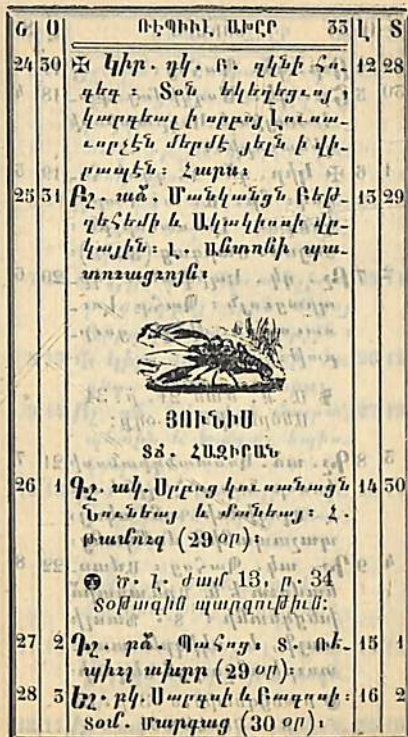 Օ Օ ՌԷՊԻԻԼ ԱԽԸՐ 33 Լ Տ
24 30 ✠ Կիր. դկ. Բ. զկնի Հո- 12 28
գեգ : Տօն եկեղեցւոյ
կարգեալ ի սրբոյ Լուսա-
ւորչէն մերմէ յելն ի վի-
րապէն : Հարա :
25 31 Բշ. աձ. Մանկանցն Բեթ- 13 29
ղեհեմի և Ակակիոսի վը-
կային : Հ. Անտոնի պա-
տուացոյն :
ՅՈՒՆԻՍ
ՏՃ. ՀԱԶԻՐԱՆ
26 1 Գշ. ակ. Սրբոց կուսանացն 14 30
Նունեայ և մանեայ : Հ.
թամուզ (29 օր) :
Ծ. Լ. ժամ 13, ր. 34
Տօթագին պարզութիւն :
27 2 Դշ. բձ. Պահոց : Տ. ռէ- 15 1
պիւլ ախըր (29 օր) :
28 3 Եշ. բկ. Սարգսի և Բագոսի : 16 2
Տօմ. մարգաց (30 օր) :